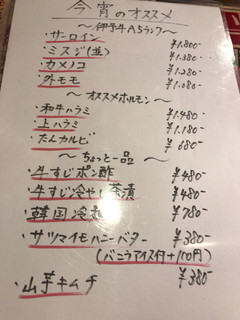 今宵のオススメ
〜伊予牛A5ランク〜
・サーロイン ¥1.800-
・ミスジ(上) ¥1.380-
・カメノコ ¥1.380-
・外モモ ¥1.080-
〜オススメホルモン〜
・和牛ハラミ ¥1.480-
・上ハラミ ¥1.180-
・たんカルビ ¥680-
〜ちょっと一品〜
・牛すじポン酢 ¥480-
・牛すじ冷やし茶漬 ¥480-
・韓国冷麺 ¥780-
・サツマイモハニーバター ¥380-
(バニラアイス付+100円)
・山芋キムチ ¥380-